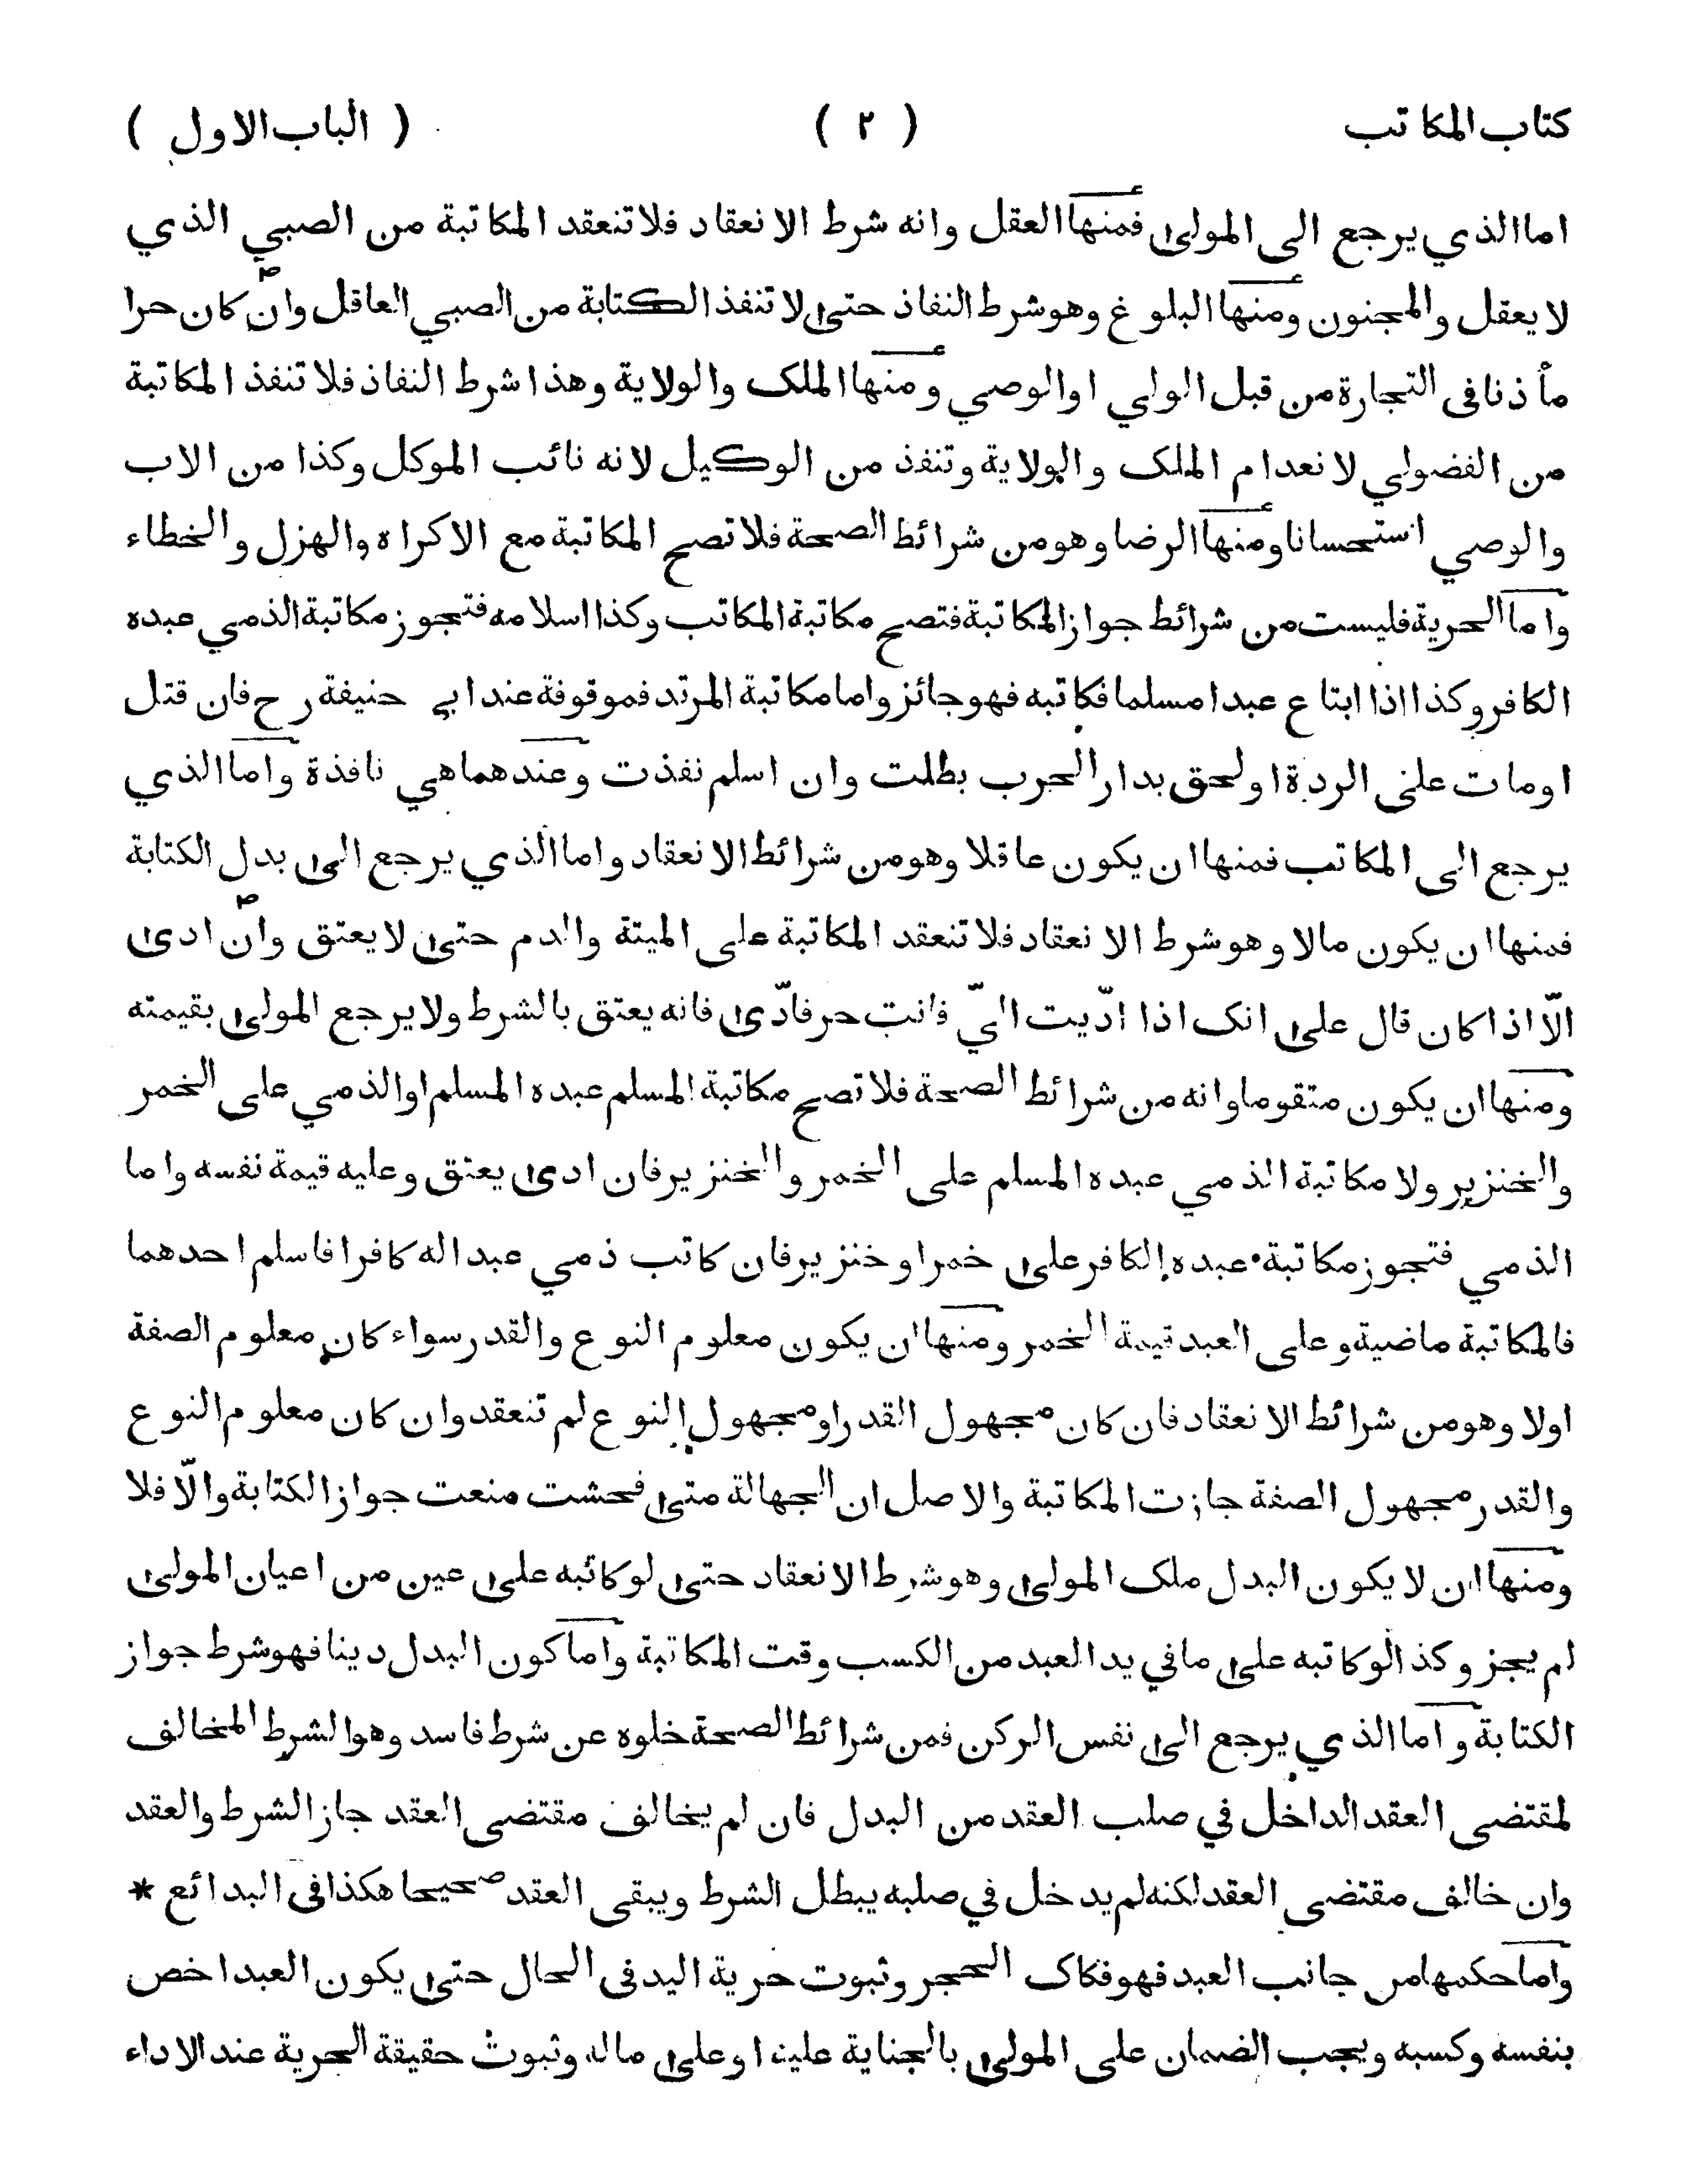 كتاب المكاتب ( ٢ ) ( الباب الاول )
اما الذي يرجع الى المولى فمنها العقل وانه شرط الانعقاد فلا تنعقد المكاتبة من الصبي الذي
لا يعقل والمجنون ومنها البلوغ وهو شرط النفاذ حتى لا تنفذ الكتابة من الصبي العاقل وان كان حرا
مأذنا فى التجارة من قبل الولي او الوصي ومنها الملك والولاية وهذا شرط النفاذ فلا تنفذ المكاتبة
من الفضولي لانعدام الملك والولاية وتنفذ من الوكيل لانه نائب الموكل وكذا من الاب
والوصي استحسانا ومنها الرضا وهو من شرائط الصحة فلا تصح المكاتبة مع الاكراه والهزل والخطاء
واما الحرية فليست من شرائط جواز المكاتبة فتصح مكاتبة المكاتب وكذا اسلامه فتجوز مكاتبة الذمي عبده
الكافر وكذا اذا ابتاع عبدا مسلما فكاتبه فهو جائز واما مكاتبة المرتد فموقوفة عند ابي حنيفة رح فان قتل
اومات على الردة او لحق بدار الحرب بطلت وان اسلم نفذت وعندهما هي نافذة واما الذي
يرجع الى المكاتب فمنها ان يكون عاقلا وهو من شرائط الانعقاد واما الذي يرجع الى بدل الكتابة
فمنها ان يكون مالا وهو شرط الانعقاد فلا تنعقد المكاتبة على الميتة والدم حتى لا يعتق وان ادى
الّا اذا كان قال على انك اذا ادّيت اليّ فانت حر فادّى فانه يعتق بالشرط ولا يرجع المولى بقيمته
ومنها ان يكون متقوما وانه من شرائط الصحة فلا تصح مكاتبة المسلم عبده المسلم او الذمي على الخمر
والخنزير ولا مكاتبة الذمي عبده المسلم على الخمر والخنزير فان ادى يعتق وعليه قيمة نفسه واما
الذمي فتجوز مكاتبة عبده الكافر على خمر او خنزير فان كاتب ذمي عبدا له كافرا فاسلم احدهما
فالمكاتبة ماضية وعلى العبد قيمة الخمر ومنها ان يكون معلوم النوع والقدر سواء كان معلوم الصفة
اولا وهو من شرائط الانعقاد فان كان مجهول القدر او مجهول النوع لم تنعقد وان كان معلوم النوع
والقدر مجهول الصفة جازت المكاتبة والاصل ان الجهالة متى فحشت منعت جواز الكتابة والّا فلا
ومنها ان لا يكون البدل ملك المولى وهو شرط الانعقاد حتى لو كاتبه على عين من اعيان المولى
لم يجز وكذا لو كاتبه على ما في يد العبد من الكسب وقت المكاتبة واما كون البدل دينا فهو شرط جواز
الكتابة واما الذي يرجع الى نفس الركن فمن شرائط الصحة خلوه عن شرط فاسد وهو الشرط المخالف
لمقتضى العقد الداخل في صلب العقد من البدل فان لم يخالف مقتضى العقد جاز الشرط والعقد
وان خالف مقتضى العقد لكنه لم يدخل في صلبه يبطل الشرط ويبقى العقد صحيحا هكذا فى البدائع *
واما حكمها من جانب العبد فهو فكاك الحجر وثبوت حرية اليد فى الحال حتى يكون العبد اخص
بنفسه وكسبه ويجب الضمان على المولى بالجناية عليه او على ماله وثبوت حقيقة الحرية عند الاداء